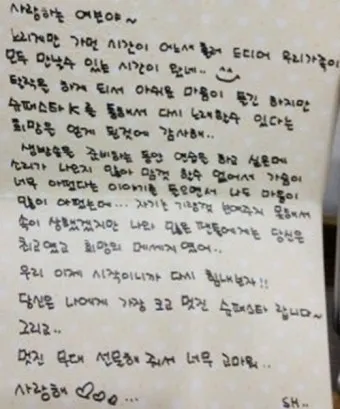 사랑하는 여보야~
느리게만 가던 시간이 어느새 흘러 드디어 우리가족이
모두 만날수 있는 시간이 왔네..
탈락을 하게 되서 아쉬운 마음이 들긴 하지만
슈퍼스타K를 통해서 다시 노래할수 있다는
희망을 얻게 된것에 감사해..
생방송을 준비하는 동안 연습은 하고 싶은데
소리가 나오지 않아 맘껏 할수 없어서 가슴이
너무 아팠다는 이야기를 들으면서 나도 마음이
많이 아팠는데... 자기는 기량껏 보여주지 못해서
속이 상했겠지만 나와 많은 팬들에게는 당신은
최고였고 희망의 메세지였어..
우리 이제 시작이니까 다시 힘내보자!!
당신은 나에게 가장 크고 멋진 슈퍼스타 랍니다~
그리고..
멋진 무대 선물해 줘서 너무 고마워..
사랑해 ♡♡♡...
SH..